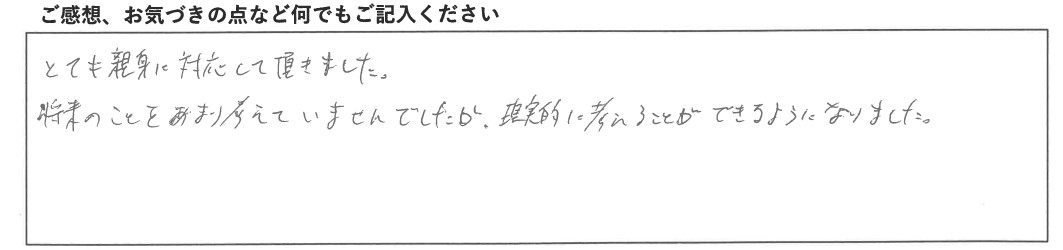 ご感想、お気づきの点など何でもご記入ください
とても親身に対応して頂きました。
将来のことをあまり考えていませんでしたが、現実的に考えることができるようになりました。